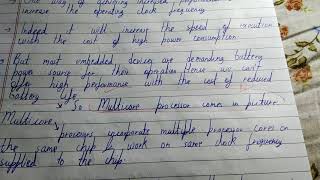 → One way of achieving increased performance is to
increase the operating clock frequency
→ Indeed it will increase the speed of execution
with the cost of high power consumption
→ But most embedded devices are demanding battery
power source for their operation. Hence we can't
offer high performance with the cost of reduced
battery life
So Multicore processor comes in picture
Multicore
processors incorporate multiple processor cores on
the same chip & work on same clock frequency
supplied to the chip.